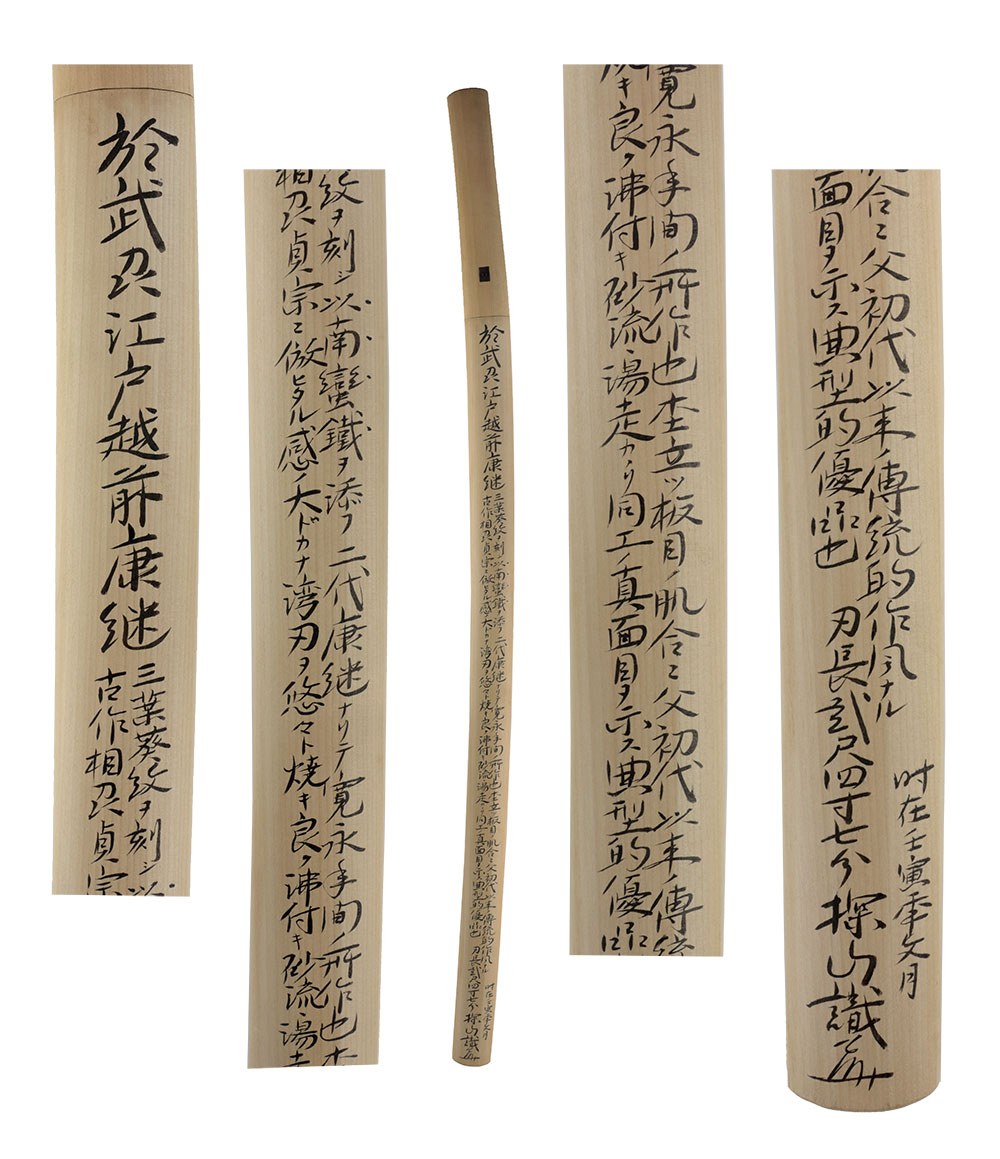 於武州江戸越前康継
三葉葵紋ヲ刻シ以
古作相州貞宗
紋ヲ刻シ以南蠻鐵ヲ添フ 二代康継ナリテ寛永年間ノ所作也杢
相州貞宗ニ倣ヒタル感ノ大ドカナ湾刃ヲ悠々ト焼キ良ク沸付キ砂流湯走
於武州江戸越前康継
三葉葵紋ヲ刻シ以南蠻鐵ヲ添フ 二代康継ナリテ寛永年間ノ所作也杢立ツ板目ノ肌合ニ父初代以来ノ傳統的作風ナル
古作相州貞宗ニ倣ヒタル感ノ大ドカナ湾刃ヲ悠々ト焼キ良ク沸付キ砂流湯走カヽリ同工ノ真面目ヲ示ス典型的優品也 刃長貳尺四寸七分 探山識
時在壬寅年文月
寛永年間ノ所作也杢立ツ板目ノ肌合ニ父初代以来ノ傳統
キ良ク沸付キ砂流湯走カヽリ同工ノ真面目ヲ示ス典型的優品
肌合ニ父初代以来ノ傳統的作風ナル
面目ヲ示ス典型的優品也 刃長貳尺四寸七分 探山識
時在壬寅年文月